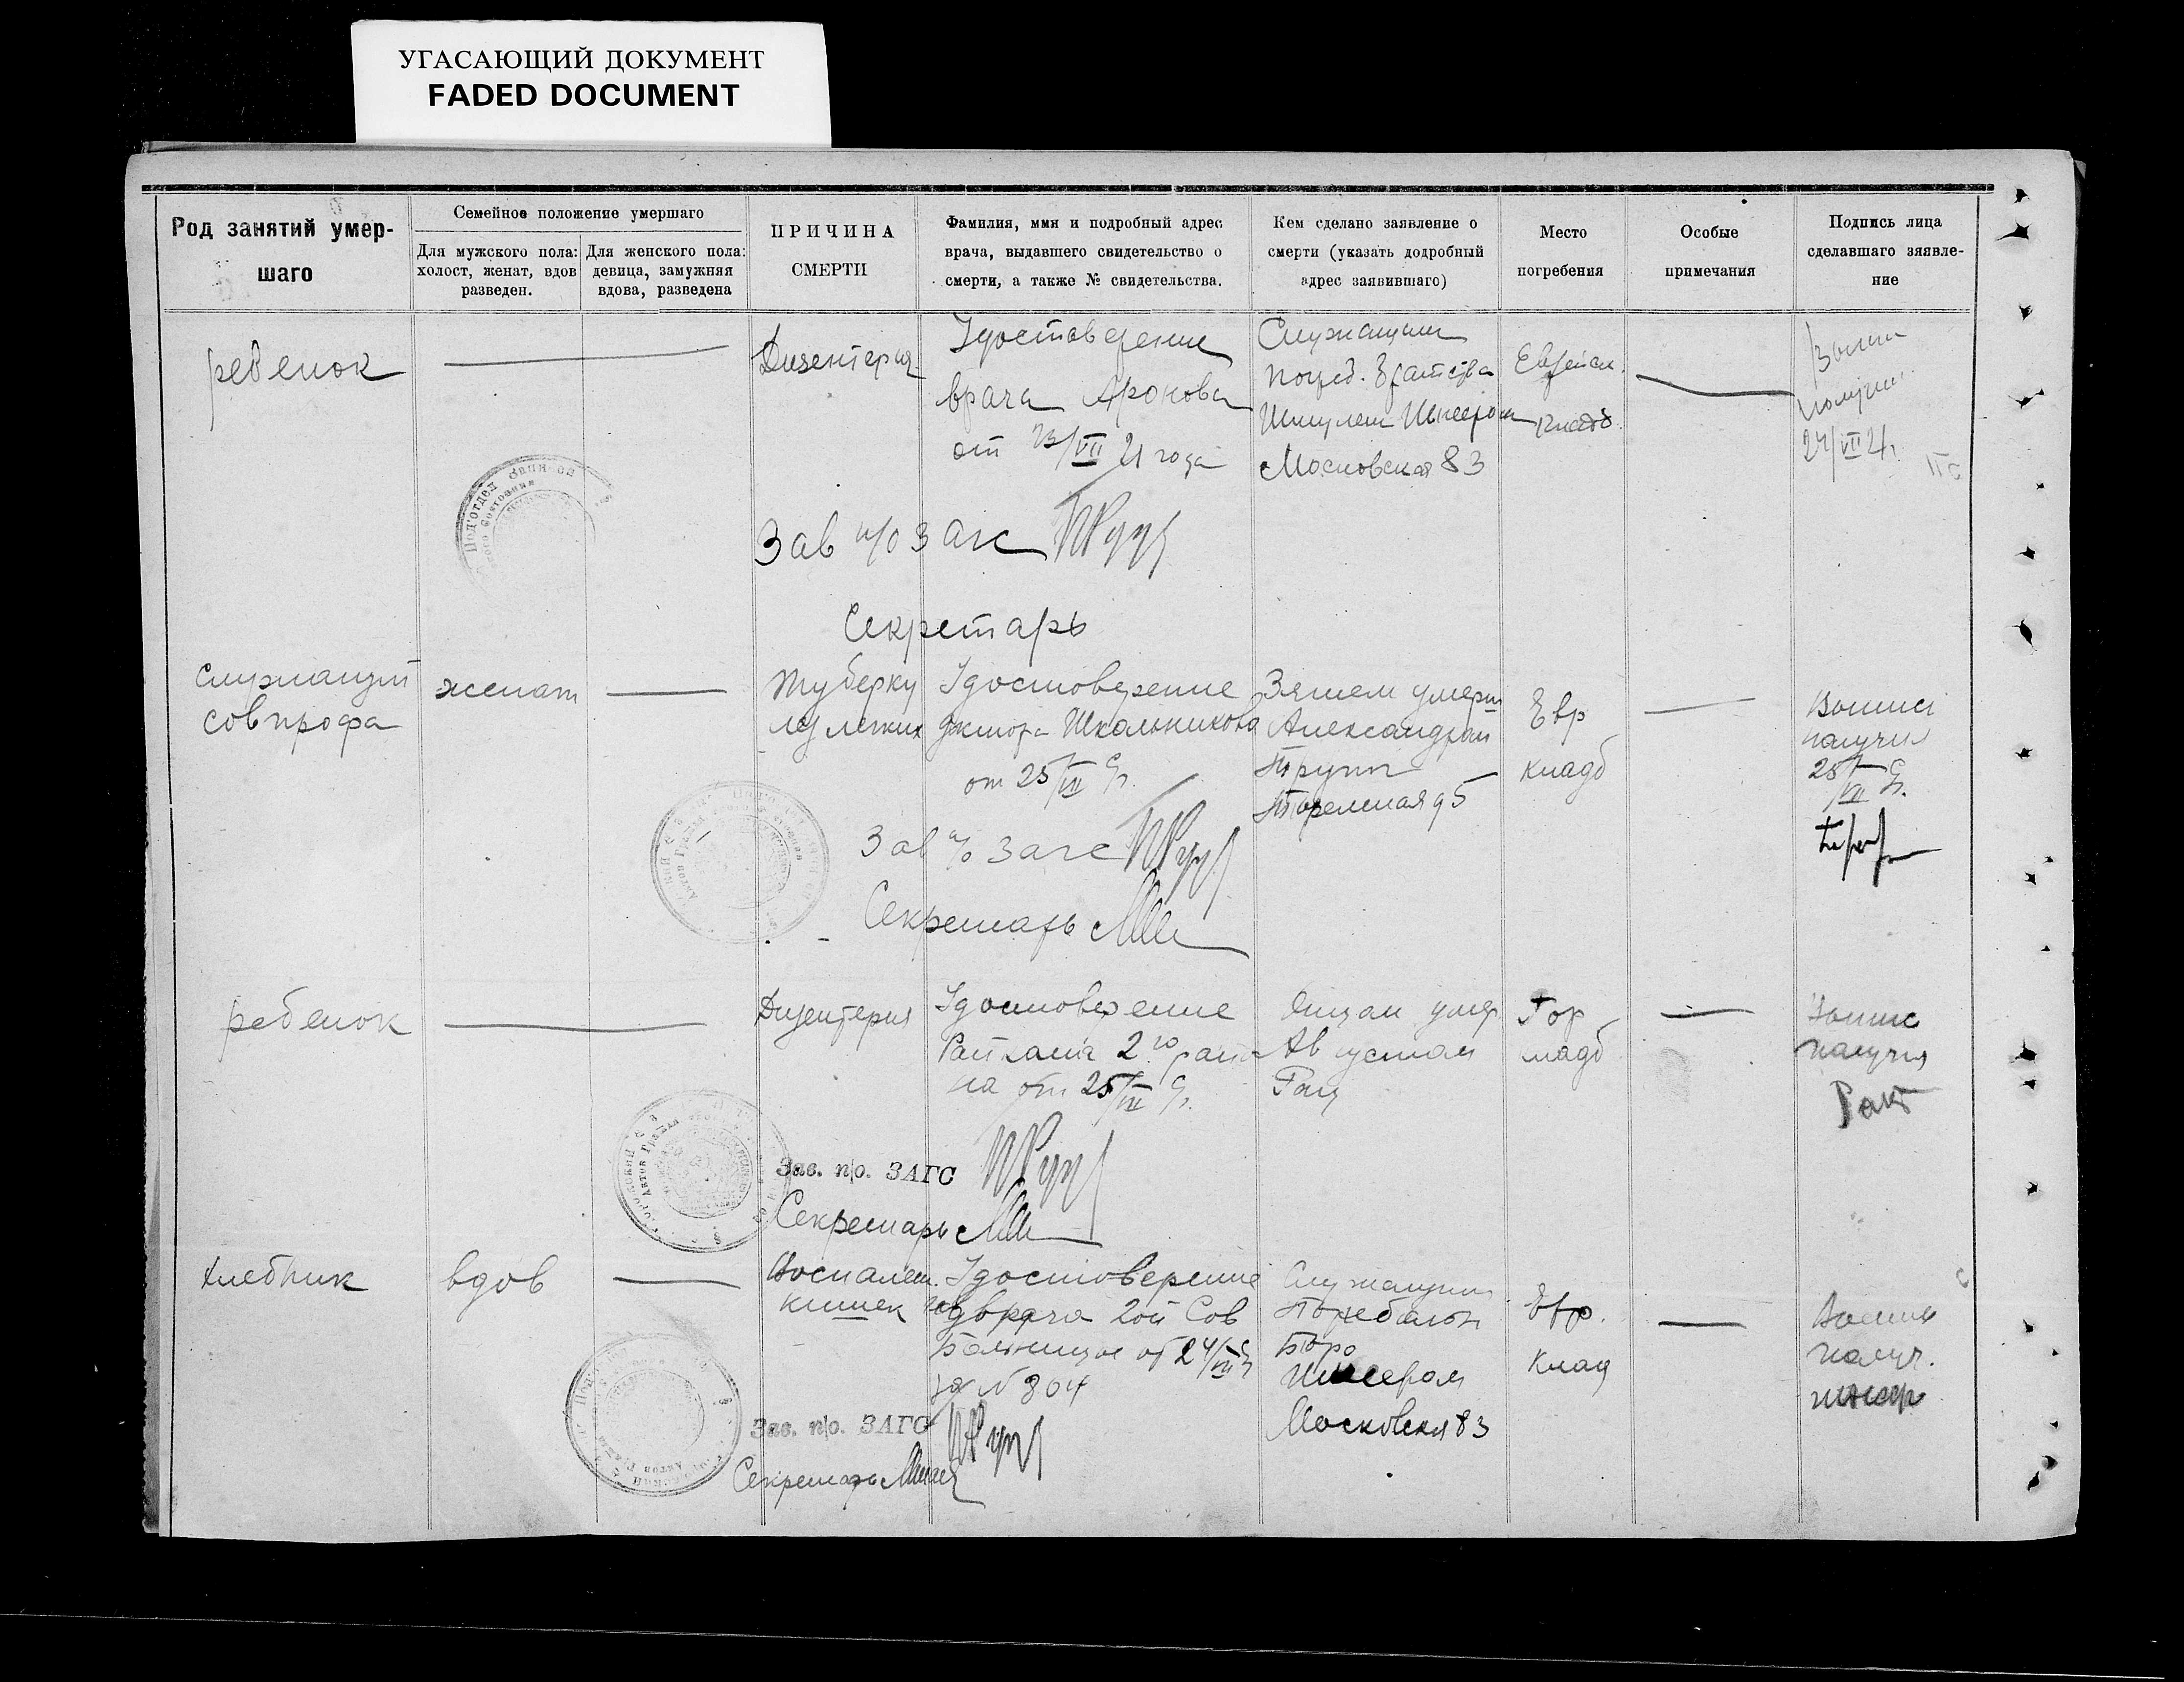 УГАСАЮЩИЙ ДОКУМЕНТ
FADED DOCUMENT
Род занятий умер-
шаго
Семейное положение умершаго
Для мужского пола:
холост, женат, вдов
разведен.
Для женского пола:
девица, замужняя
вдова, разведена
ПРИЧИНА
СМЕРТИ
Фамилия, ммя и подробный адрес
врача, выдавшего свидетельство о
смерти, а также № свидетельства.
Кем сделано заявление о
смерти (указать додробный
адрес заявившаго)
Место
погребения
Особые
примечания
Подпись лица
сделавшаго зяявле-
ние
ребенок
Дизентерия
Удостоверение
врача Аронова
от 23/VII 21 года
Служащим
погреб. братства
Шмулем
Московская 83
Еврейск.
кладб.
получил
24/VII 21г.
Зав п/о Загс
Секретарь
Служащий
совпрофа
женат
туберку
лез легких
Удостоверение
доктора Школьникова
от 25/VII с/г.
Зятем умерш
Александром
95
Евр
кладб
Выпись
получил
25/VII с/г.
Зав п/о Загс
Секретарь
ребенок
Дизентерия
Удостоверение
2го
на от 25/VII с/г.
Отцом умер
Августом
Гор
кладб
Выпис
получил
Зав. п/о. ЗАГС
Секретарь
хлебник
вдов
Воспален.
кишек
Удостоверение
врача 2ой Сов
Больницы от 24/VII с/г
за N 304
Служащим
Погребальн
Бюро
Московская 83
Евр.
Клад
Выпись
получ.
Зав. п/о. ЗАГС
Секретарь